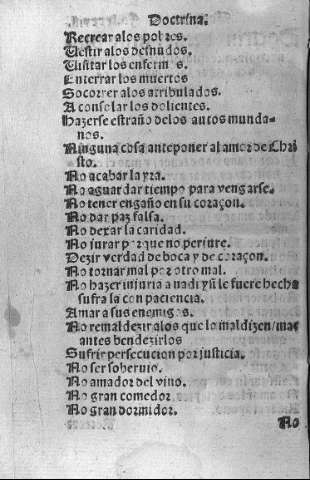 Doctrina.
Recrear alos pobres.
Uestir alos desnudos.
Uisitar los enfermos.
Enterrar los muertos
Socorrer alos atribulados.
A consolar los dolientes.
Hazerse estraño delos autos munda-
nos.
Ninguna cosa anteponer al amor de Chri
sto.
No acabar la yra.
No aguardar tiempo para vengarse.
No tener engaño en su coraçon.
No dar paz falsa.
No dexar la caridad.
No jurar porque no perjure.
Dezir verdad de boca y de coraçon.
No tornar mal por otro mal.
No hazer injuria a nadi y si le fuere hecha
sufra la con paciencia.
Amar a sus enemigos.
No remaldezir alos que lo maldizen/mas
antes bendezirlos
Sufrir persecucion por justicia.
No ser soberuio.
No amador del vino.
No gran comedor
No gran dormidor.
No